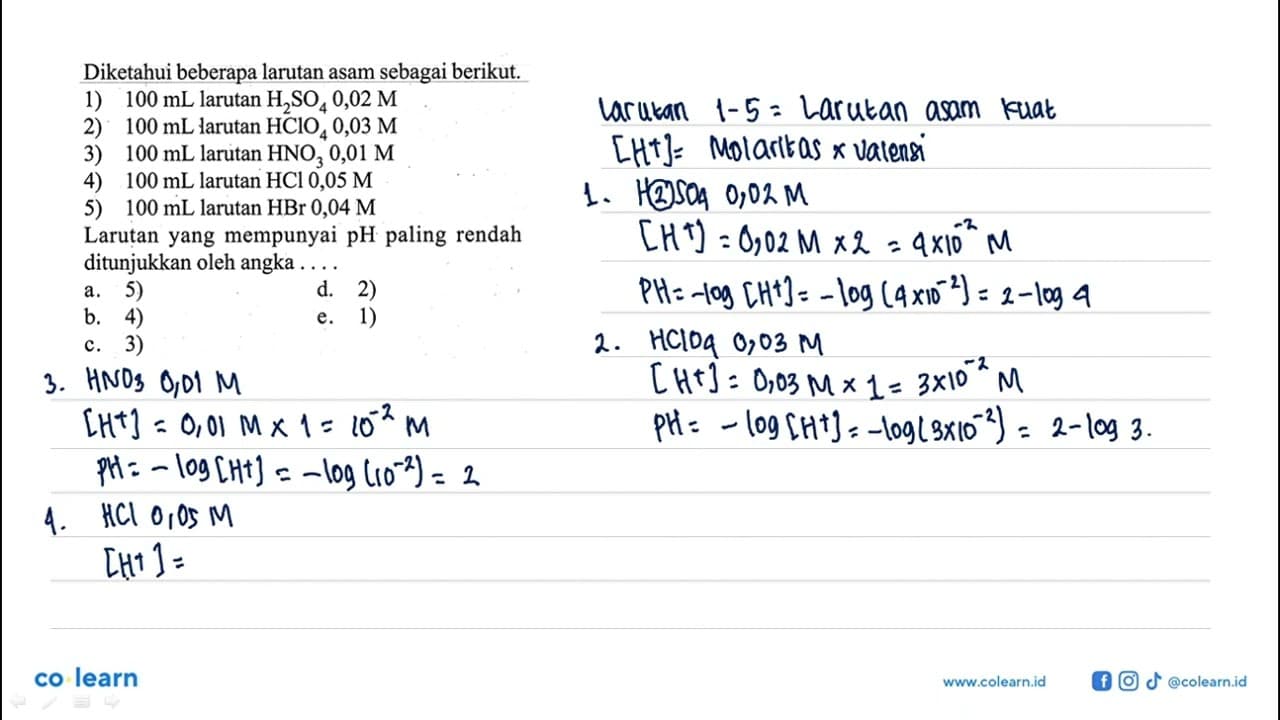 Diketahui beberapa larutan asam sebagai berikut.
1) 100 mL larutan H₂SO₄ 0,02 M
2) 100 mL larutan HClO₄ 0,03 M
3) 100 mL larutan HNO₃ 0,01 M
4) 100 mL larutan HCl 0,05 M
5) 100 mL larutan HBr 0,04 M
Larutan yang mempunyai pH paling rendah
ditunjukkan oleh angka . . . .
a. 5) d. 2)
b. 4) e. 1)
c. 3)
Larutan 1-5 = Larutan asam kuat
[H+] = Molaritas x valensi
1. H2SO4 0,02 M
[H+] = 0,02 M x 2 = 4x10⁻² M
PH = -log [H+] = -log (4x10⁻²) = 2-log 4
2. HClO4 0,03 M
[H+] = 0,03 M x 1 = 3x10⁻² M
PH = -log [H+] = -log (3x10⁻²) = 2-log 3.
3. HNO3 0,01 M
[H+] = 0,01 M x 1 = 10⁻² M
PH = -log [H+] = -log (10⁻²) = 2
4. HCl 0,05 M
[H+] =
co learn
www.colearn.id @colearn.id